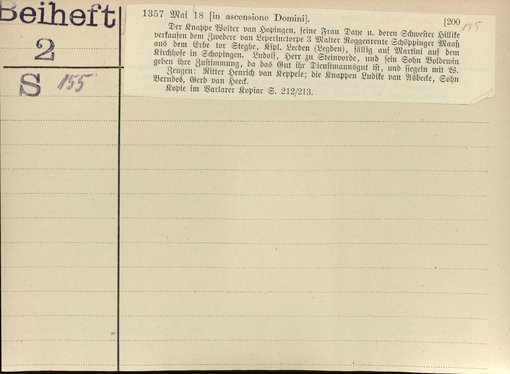 Beiheft
2
S 155
1357 Mai 18 [in ascensione Domini]. [200
155
Der Knappe Wolter van Hopingen, seine Frau Daye u. deren Schwester Hillike
verkaufen dem Zwedere van Leperinctorpe 3 Malter Roggenrente Schöppinger Maaß
aus dem Erbe tor Steghe, Kspl. Lecden (Legden), fällig auf Martini auf dem
Kirchhofe in Schopingen. Ludolf, Herr zu Steinvorde, und sein Sohn Boldewin
geben ihre Zustimmung, da das Gut ihr Dienstmannsgut ist, und siegeln mit W.
Zeugen: Ritter Henrich van Keppele; die Knappen Ludike van Asbeke, Sohn
Berndes, Gerd van Heeck.
Kopie im Varlarer Kopiar S. 212/213.